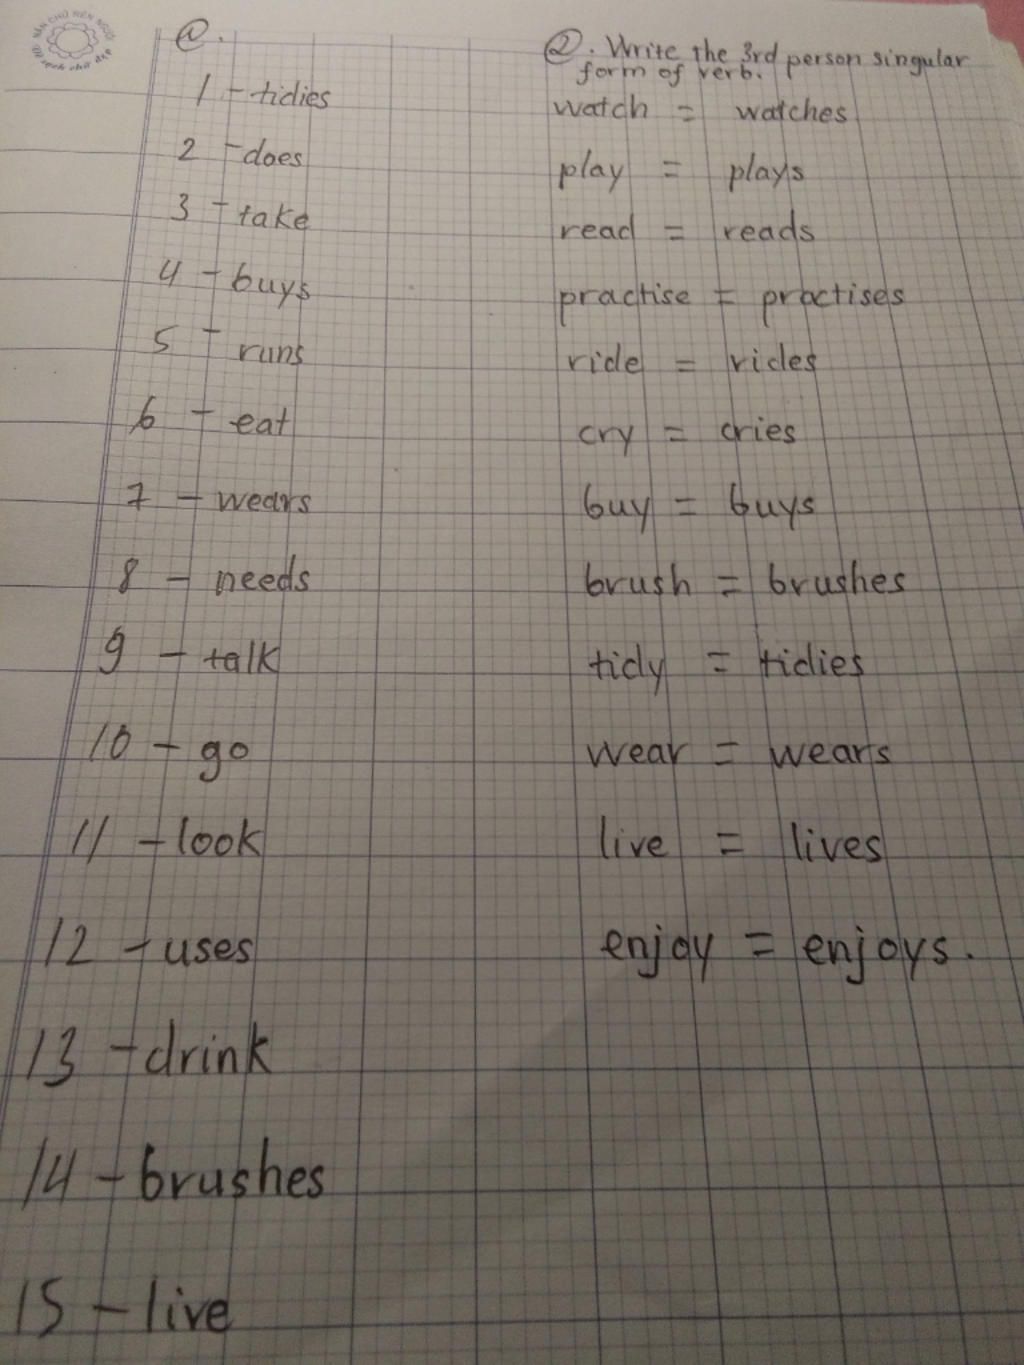 NẮN CHỮ RÈN NGƯỜI
Giữ sạch chữ đẹp
@.
1 - tidies
2 - does
3 - take
4 - buys
5 - runs
6 - eat
7 - wears
8 - needs
9 - talk
10 - go
11 - look
12 - uses
13 - drink
14 - brushes
15 - live
②. Write the 3rd person singular
form of verb.
watch = watches
play = plays
read = reads
practise = practises
ride = rides
cry = cries
buy = buys
brush = brushes
tidy = tidies
wear = wears
live = lives
enjoy = enjoys.